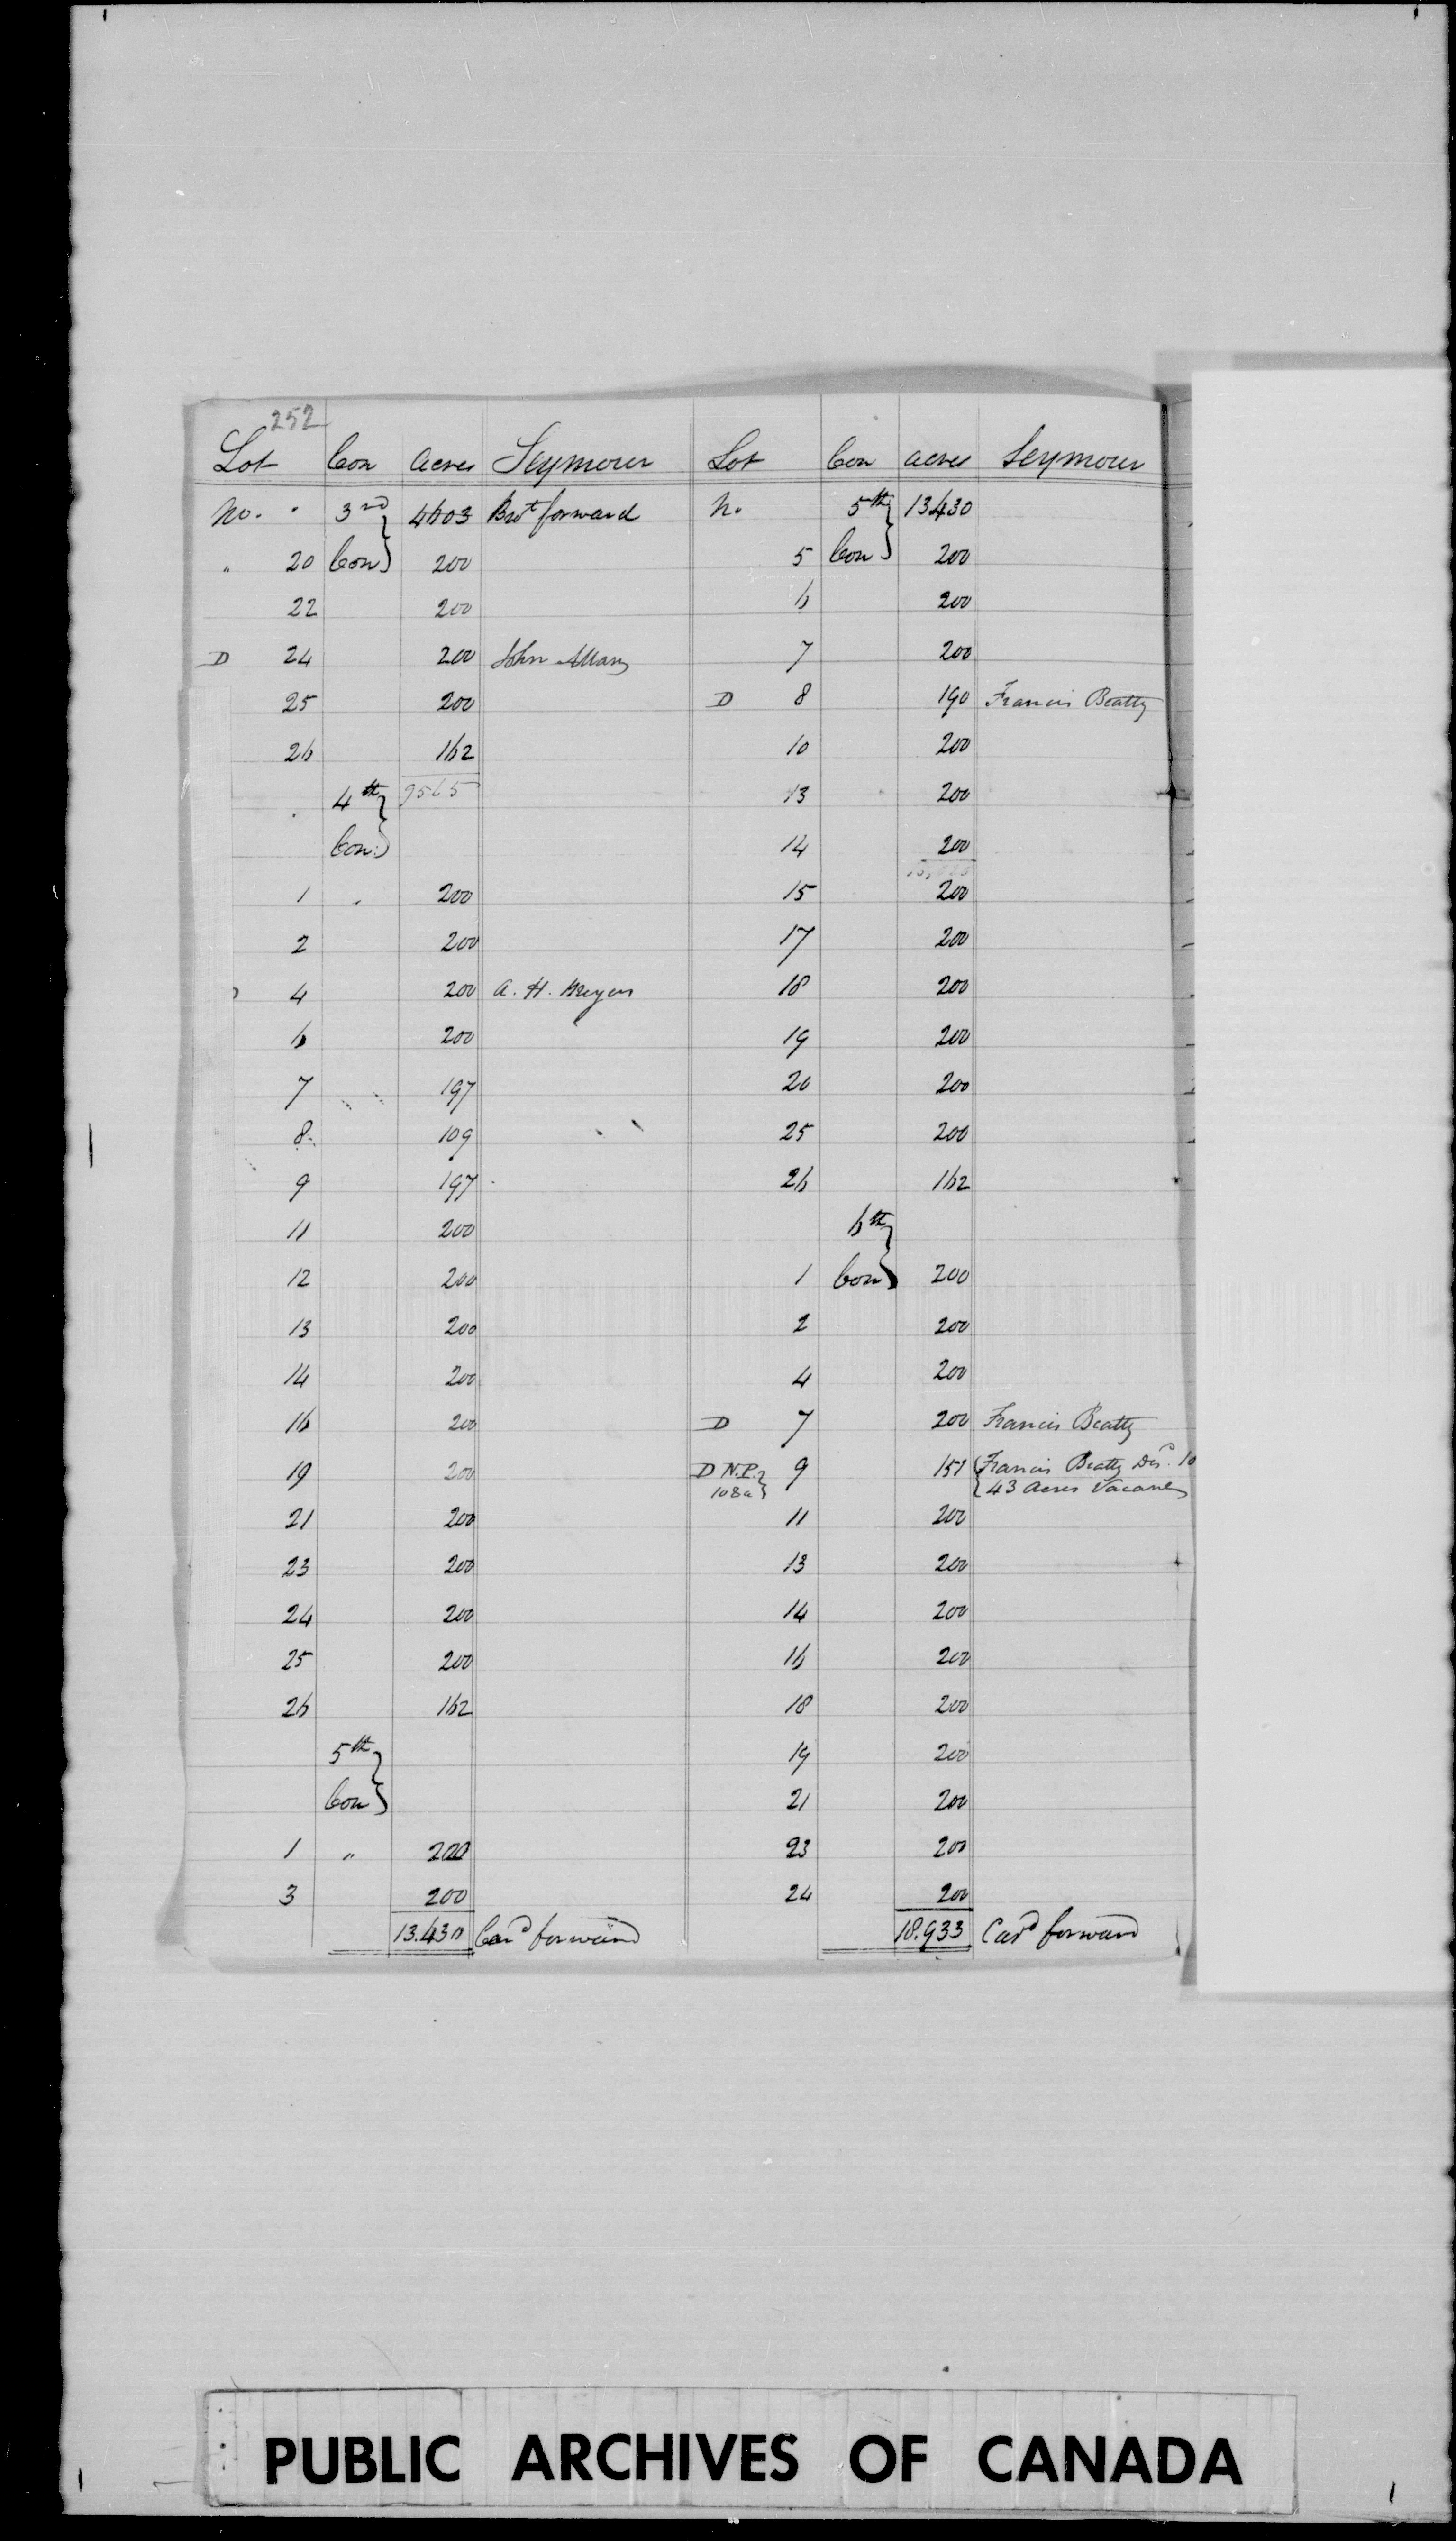 252
Lot Con Acres Seymour
No. " 3rd 4603 Brot forward
" 20 Con 200
22 200
D 24 200 John Allan
25 200
26 162
4th
Con.
1 " 200
2 200
4 200 A. H. Meyers
6 200
7 197
8 109
9 197
11 200
12 200
13 200
14 200
16 200
19 200
21 200
23 200
24 200
25 200
26 162
5th
Con
1 " 200
3 200
13.430 Card forward
Lot Con acres Seymour
No. 5th 13430
5 Con 200
6 200
7 200
D 8 190 Francis Beatty
10 200
13 200
14 200
15 200
17 200
18 200
19 200
20 200
25 200
26 162
6th
1 Con 200
2 200
4 200
D 7 200 Francis Beatty
D N.P. 9 151 Francis Beatty Desd. 10
108a 43 Acres Vacant
11 200
13 200
14 200
16 200
18 200
19 200
21 200
23 200
24 200
18.933 Card forward
PUBLIC ARCHIVES OF CANADA